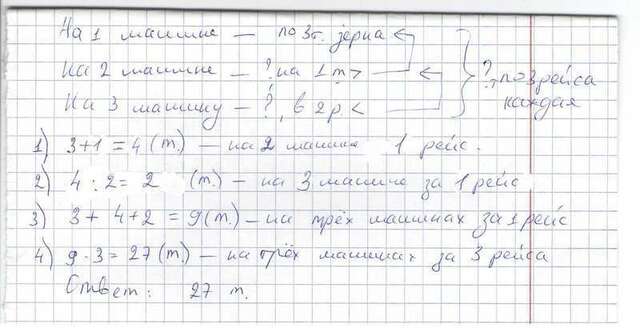 На 1 машине — по 3т. зерна
На 2 машине — ? на 1 т >
На 3 машину — ?, в 2 р. <
? т по 3 рейса каждая
1) 3+1=4 (т.) — на 2 машине 1 рейс.
2) 4:2=2 (т.) — на 3 машине за 1 рейс
3) 3+4+2=9(т.) — на трёх машинах за 1 рейс
4) 9·3=27(т.) — на трёх машинах за 3 рейса
Ответ: 27 т.